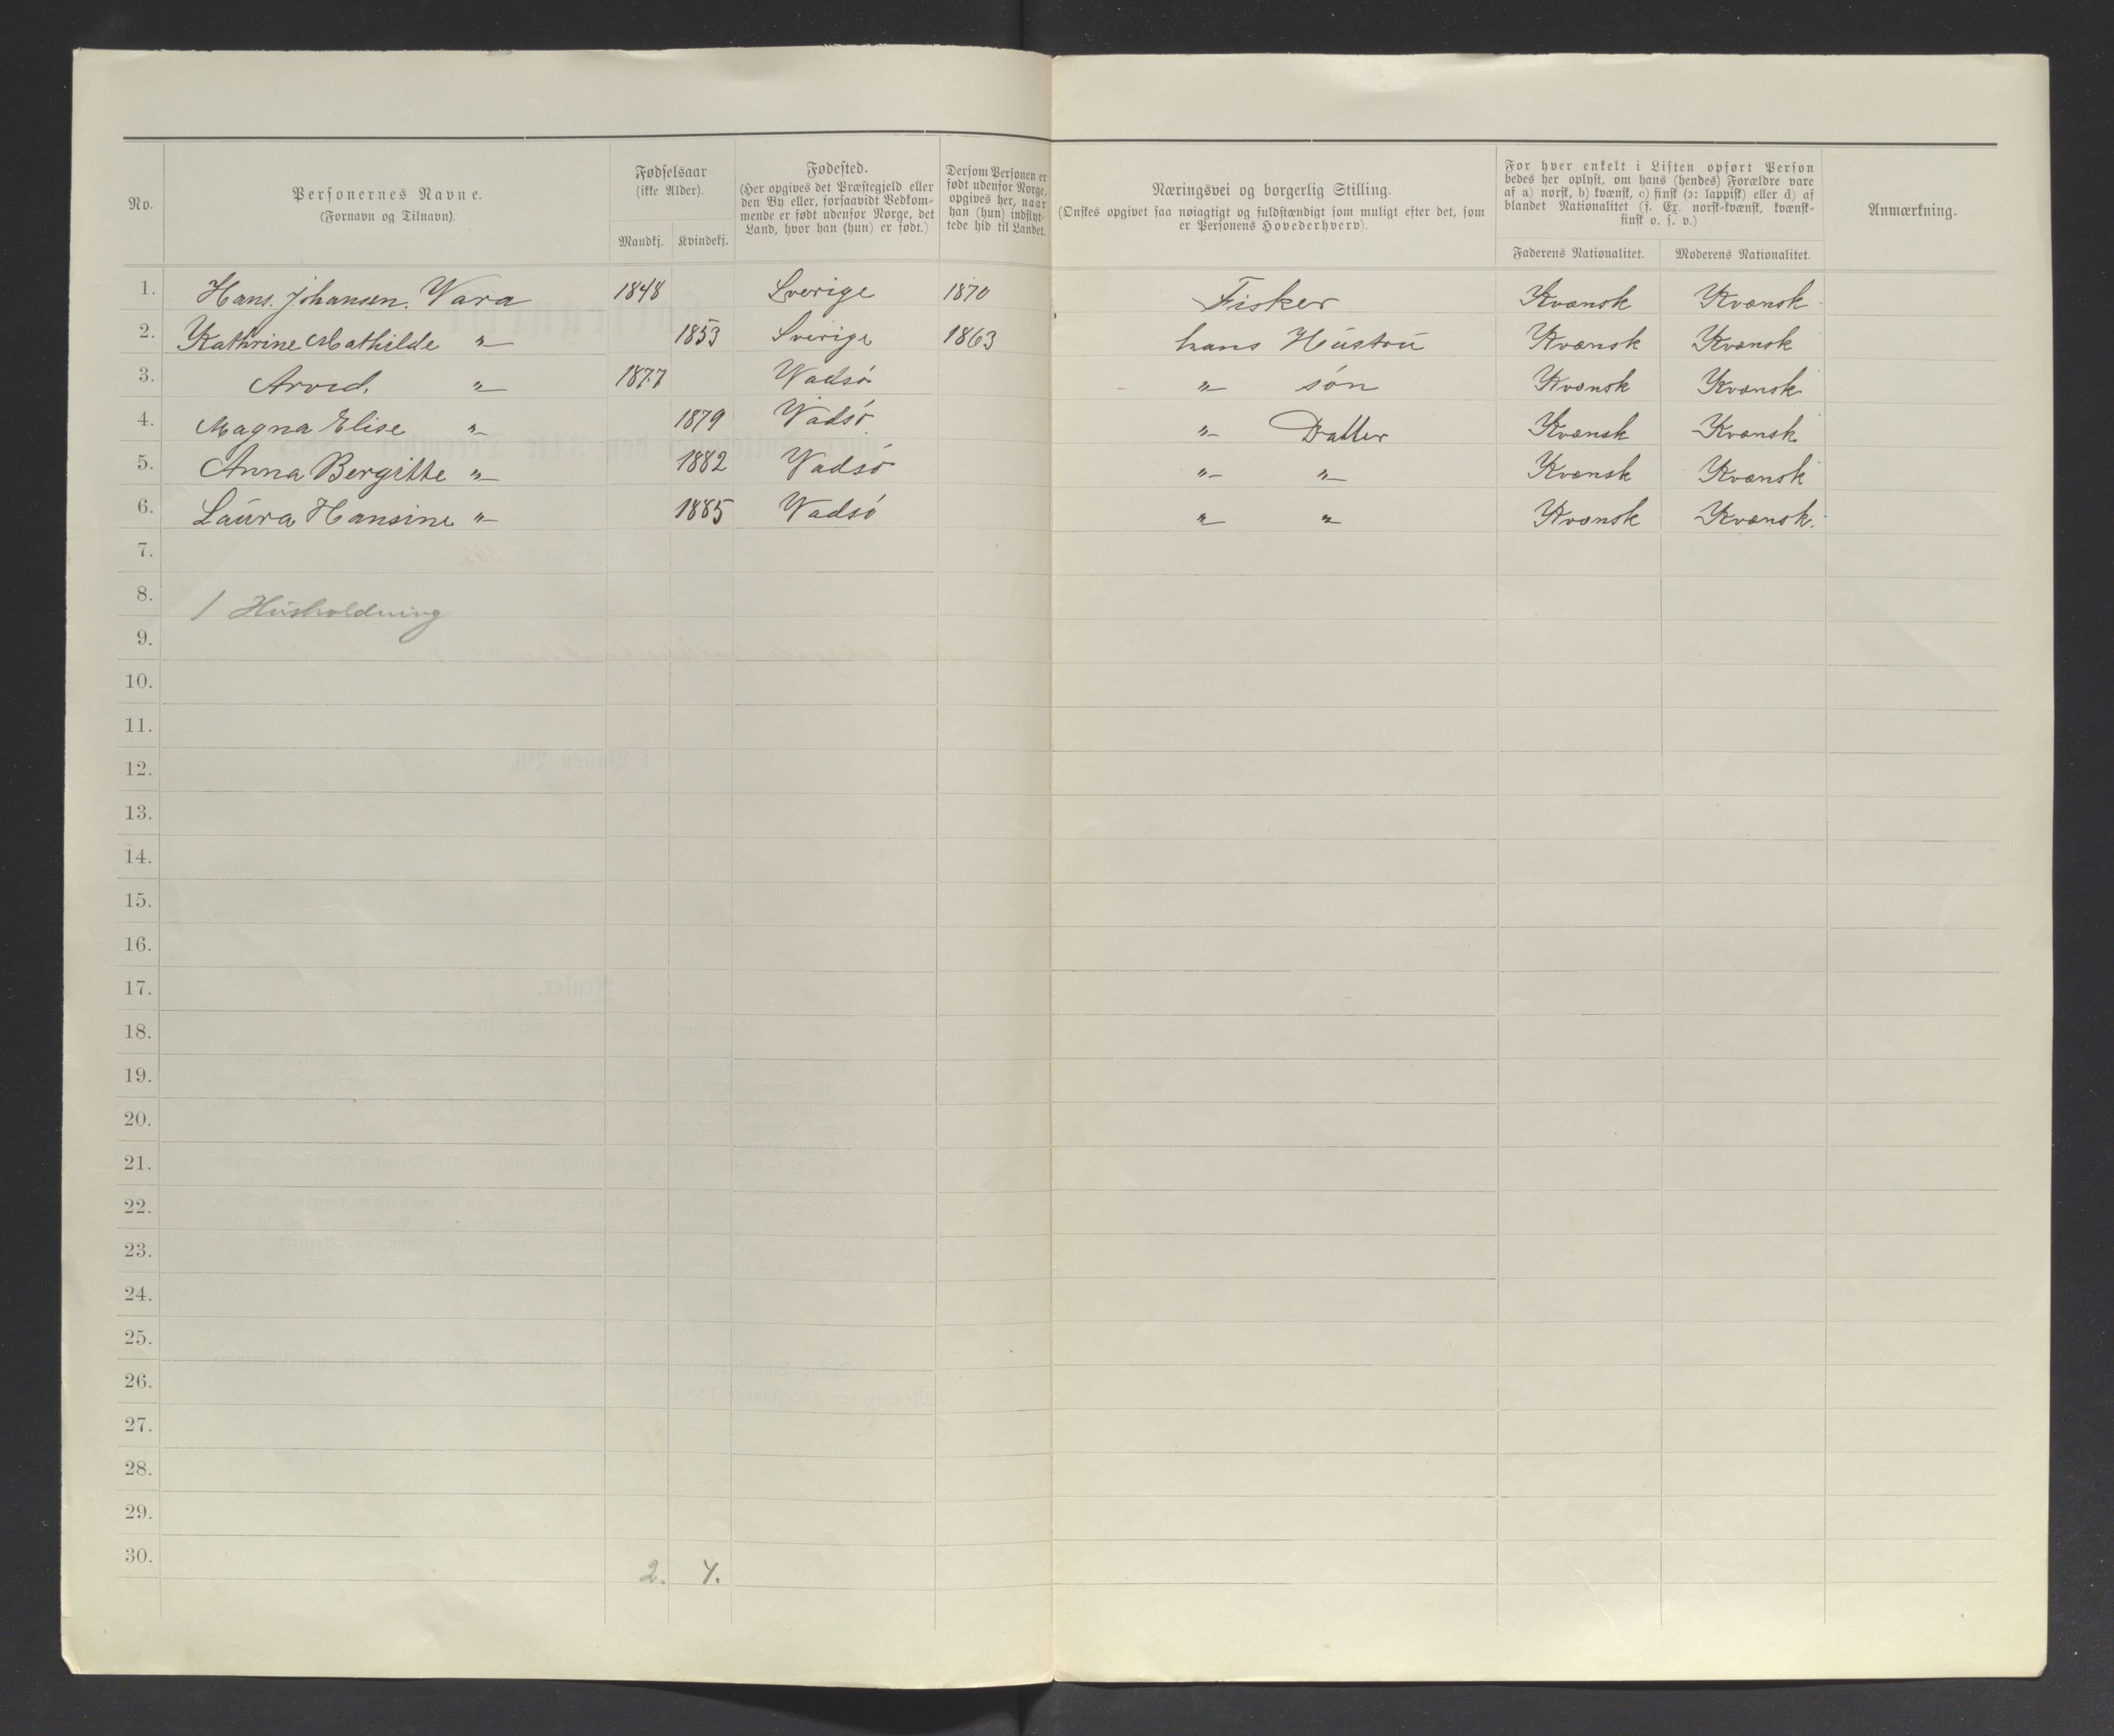 No.
Personernes Navne.
(Fornavn og Tilnavn).
Fødselsaar
(ikke Alder).
Mandkj. Kvindekj.
Fødested.
(Her opgives det Præstegjeld eller
den By eller, forsaavidt Vedkom-
mende er født udenfor Norge, det
Land, hvor han (hun) er født.)
Dersom Personen er
født udenfor Norge,
opgives her, naar
han (hun) indflyt-
tede hid til Landet.
Næringsvei og borgerlig Stilling.
(Ønskes opgivet saa nøiagtigt og fuldstændigt som muligt efter det, som
er Personens Hovederhverv).
For hver enkelt i Listen opført Person
bedes her oplyst, om hans (hendes) Forældre vare
af a) norsk, b) kvænsk, c) finsk (ɔ: lappisk) eller d) af
blandet Nationalitet (f. Ex. norsk-kvænsk, kvænsk-
finsk o. s. v.)
Faderens Nationalitet. Moderens Nationalitet.
Anmærkning.
1. Hans. Johansen. Vara 1848 Sverige 1870 Fisker Kvænsk Kvænsk
2. Kathrine Mathilde " 1853 Sverige 1863 hans Hustru Kvænsk Kvænsk
3. Arvid. " 1877 Vadsö " sön Kvænsk Kvænsk
4. Magna Elise " 1879 Vadsö " Datter Kvænsk Kvænsk
5. Anna Bergitte " 1882 Vadsö " " Kvænsk Kvænsk
6. Laura Hansine " 1885 Vadsö " " Kvænsk Kvænsk.
7.
8. 1 Husholdning
9.
10.
11.
12.
13.
14.
15.
16.
17.
18.
19.
20.
21.
22.
23.
24.
25.
26.
27.
28.
29.
30.
2. 4.